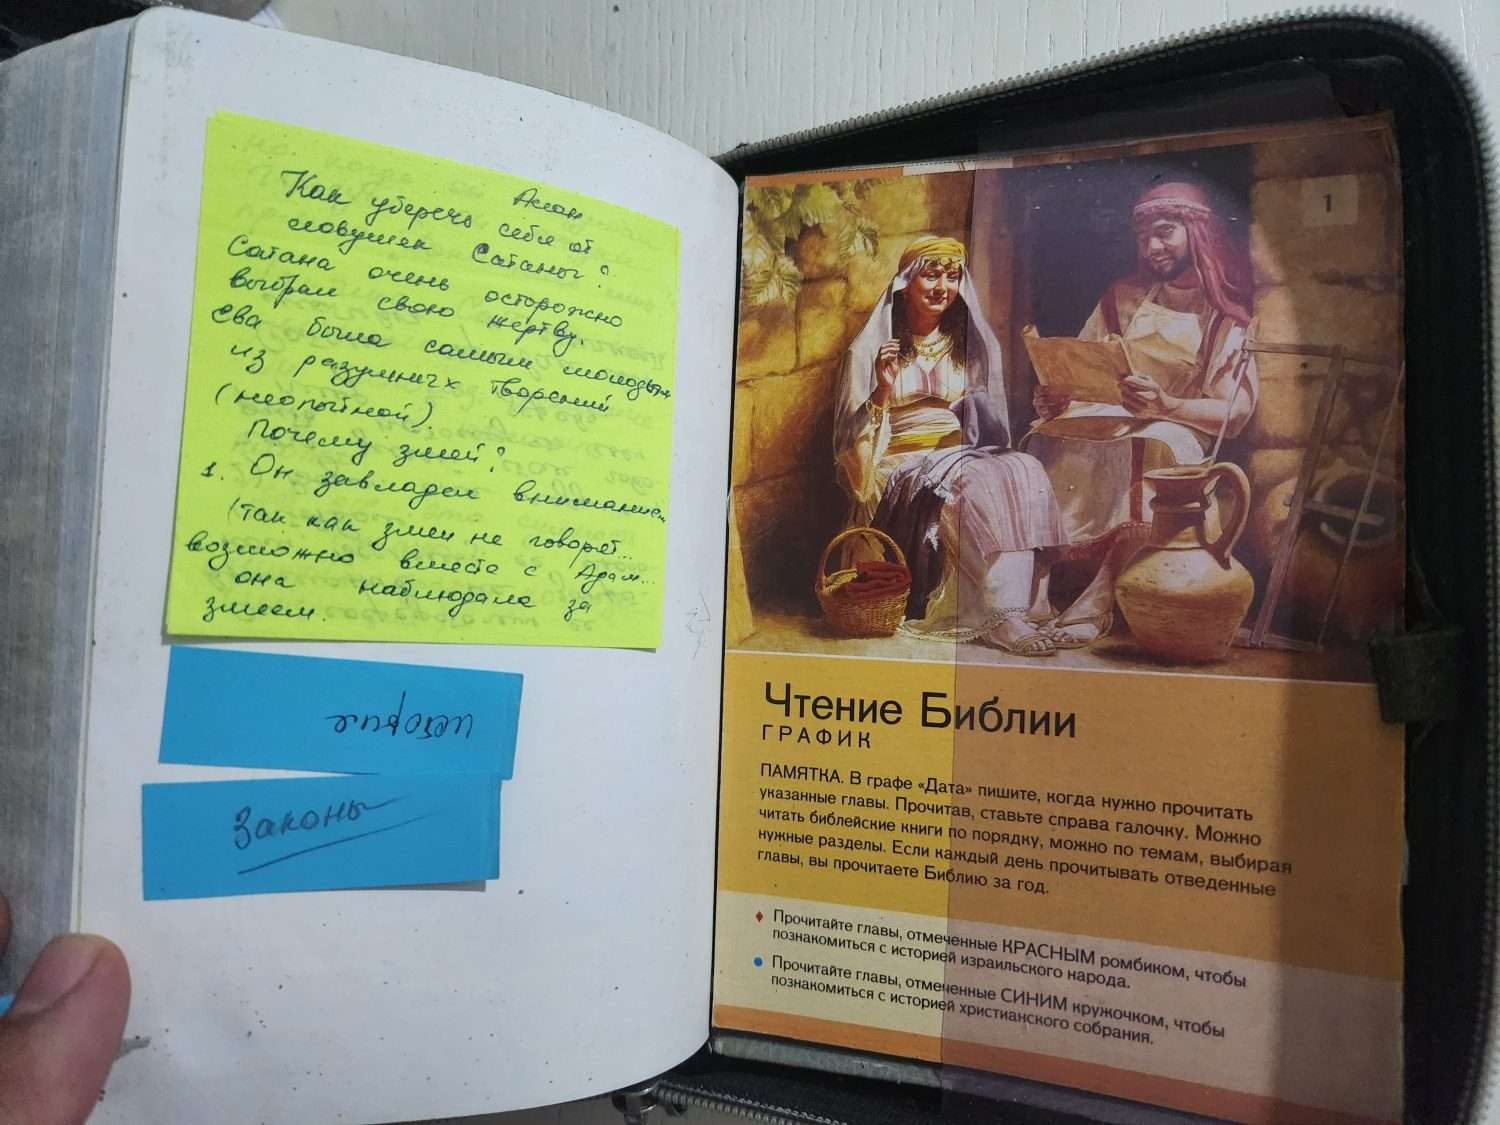 Асан
Как уберечь себя от
ловушек Сатаны?
Сатана очень осторожно
выбрал свою жертву.
Ева была самым молодым
из разумных творений
(неопытной).
Почему змей?
1. Он завладел вниманием
(так как змеи не говорят...
возможно вместе с Адам...
она наблюдала за
змеем.
Законы
1
Чтение Библии
ГРАФИК
ПАМЯТКА. В графе «Дата» пишите, когда нужно прочитать
указанные главы. Прочитав, ставьте справа галочку. Можно
читать библейские книги по порядку, можно по темам, выбирая
нужные разделы. Если каждый день прочитывать отведенные
главы, вы прочитаете Библию за год.
Прочитайте главы, отмеченные КРАСНЫМ ромбиком, чтобы
познакомиться с историей израильского народа.
Прочитайте главы, отмеченные СИНИМ кружочком, чтобы
познакомиться с историей христианского собрания.